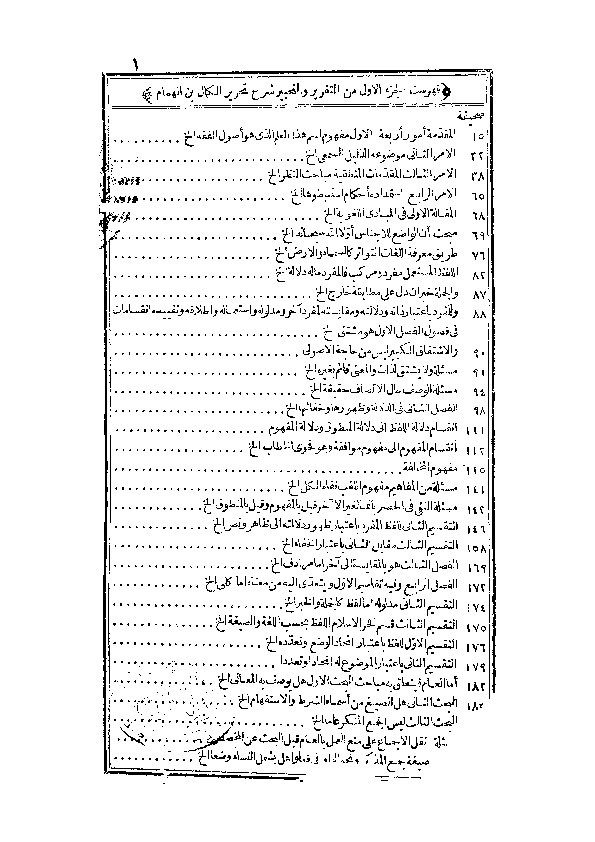 ١
فهرست الجزء الاول من التقرير والتحبير شرح تحرير الكمال بن الهمام
صحيفة
١٥ المقدمة أمور أربعة الاول مفهوم اسم هذا العلم الذى هو أصول الفقه الخ
٣٢ الامر الثانى موضوعه الدليل السمعى الخ
٣٨ الامر الثالث المقدمات المنطقية مباحث النظر الخ
٦٥ الامر الرابع استمداده أحكام استنبطوها الخ
٦٨ المقالة الاولى فى المبادى اللغوية الخ
٦٩ مبحث أن الواضع للاجناس أولا الله سبحانه الخ
٧٦ طريق معرفة اللغات التواتر كالسماء والارض الخ
٨٢ اللفظ المستعمل مفرد ومركب فالمفرد ماله دلالة الخ
٨٧ والجملة خبر ان دل على مطابقة خارج الخ
٨٨ وللمفرد باعتبار ذاته ودلالته ومقايسته لمفرد آخر ومدلوله واستعماله واطلاقه وتقييده انقسامات
فى فصول الفصل الاول هو مشتق الخ
٩٠ والاشتقاق الكبير ليس من حاجة الاصولى
٩١ مسئلة ولا يشتق لذات والمعنى قائم بغيره الخ
٩٤ مسئلة الوصف حال الاتصاف حقيقة الخ
٩٨ الفصل الثانى فى الدلالة وظهورها وخفائها الخ
١١١ انقسام دلالة اللفظ الى دلالة المنطوق ودلالة المفهوم
١١٢ أنقسام المفهوم الى مفهوم موافقة وهو فحوى الخطاب الخ
١١٥ مفهوم المخالفة
١٤١ مسئلة من المفاهيم مفهوم اللقب نفاه الكل الخ
١٤٢ مسئلة النفى فى الحصر بانما لغير الآخر قيل بالمفهوم وقيل بالمنطوق الخ
١٤٦ التقسيم الثانى للفظ المفرد باعتبار ظهور دلالته الى ظاهر ونص الخ
١٥٨ التقسيم الثالث مقابل الثانى باعتبار الخفاء الخ
١٦٩ الفصل الثالث هو بالمقايسة الى آخر اما مرادف الخ
١٧٢ الفصل الرابع وفيه تقاسيم الاول ويتعدى اليه من معناه اما كلى الخ
١٧٤ التقسيم الثانى مدلوله اما لفظ كالجملة والخبر الخ
١٧٥ التقسيم الثالث قسم فخر الاسلام اللفظ بحسب اللغة والصيغة الخ
١٧٦ التقسيم الاول اللفظ باعتبار اتحاد الوضع وتعدده الخ
١٧٩ التقسيم الثانى باعتبار الموضوع له اتحادا وتعددا
١٨٢ أما العام فيتعلق به مباحث البحث الاول هل يوصف به المعانى الخ
١٨٢ البحث الثانى هل الصيغ من أسماء الشرط والاستفهام الخ
البحث الثالث ليس الجمع المنكر عاما الخ
ئلة نقل الاجماع على منع العمل بالعام قبل البحث عن المخصص
صيغة جمع المذكر هل يشمل النساء وضعا الخ